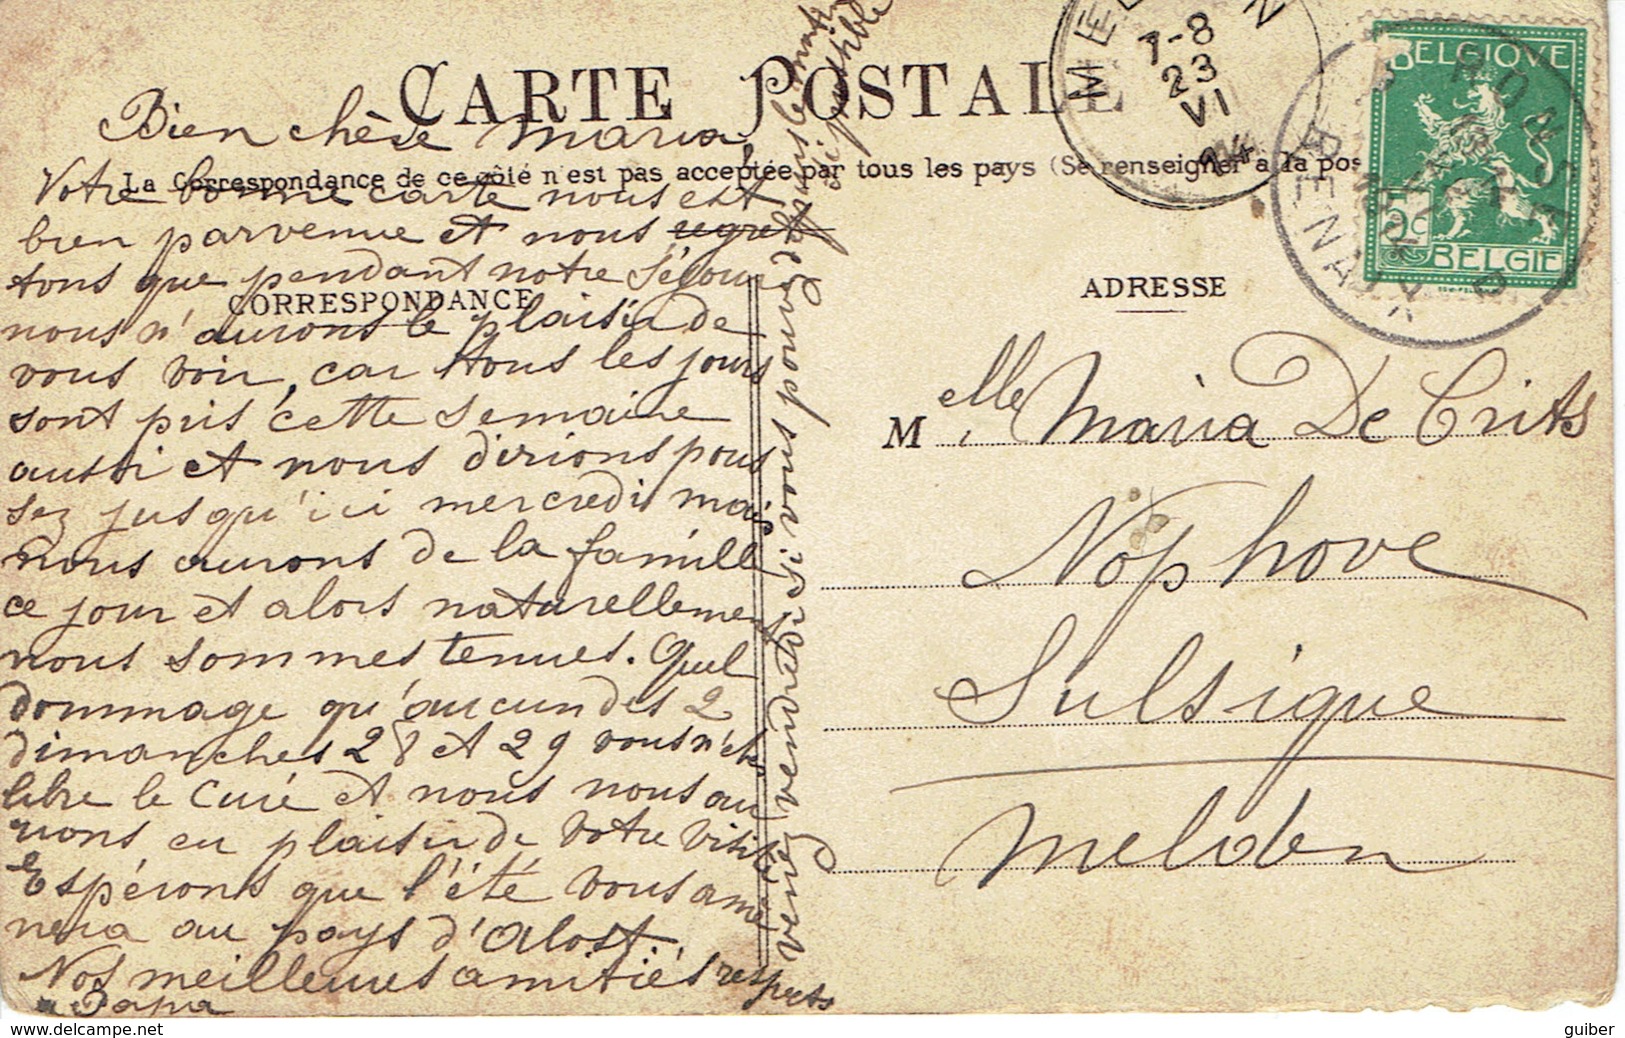 CARTE POSTALE
La Correspondance de ce côté n'est pas acceptée par tous les pays (Se renseigner à la pos
CORRESPONDANCE
ADRESSE
Bien chère Maria,
Votre bonne carte nous est
bien parvenue et nous regret
tons que pendant notre séjour
nous n'aurons le plaisir de
vous voir, car tous les jours
sont pris cette semaine
aussi et nous dirions pous
sez jusqu'ici mercredi mais
nous aurons de la famille
ce jour et alors naturellement
nous sommes tenues. Quel
dommage qu'aucun des 2
dimanches 28 et 29 vous n'ete
libre le Curé et nous nous au
rions eu plaisir de votre visite
Espérons que l'été vous amè
nera au pays d'Alost.
Nos meilleures amitiés respects
à Papa
venez vendredi si vous pouvez
le matin
si possible
Melle Maria De Crits
Nophove
Sulsique
Melden
7-8
23
VI
14
BELGIQUE
5c
BELGIË
RENAIX
guiber